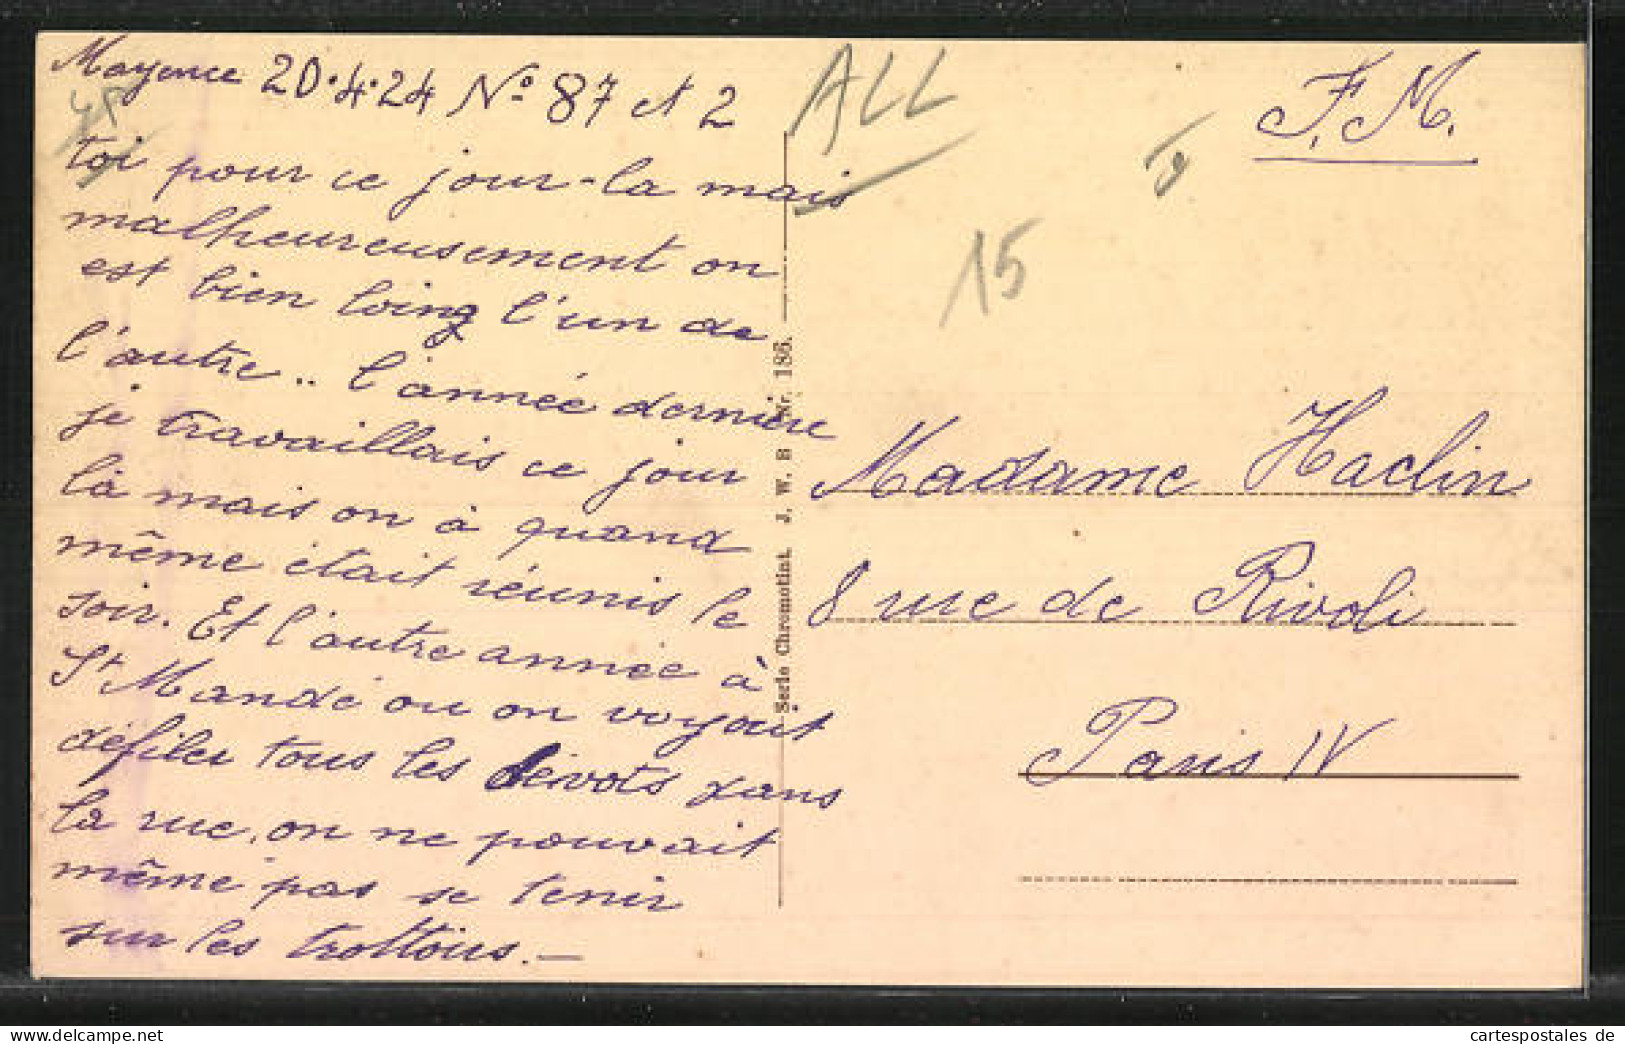 Mayence 20.4.24 N° 87 et 2
toi pour ce jour-la mais
malheureusement on
est bien loing l'un de
l'autre .. l'année dernière
je travaillais ce jour
là mais on à quand
même était réunis le
soir. Et l'autre année à
St Mandé ou on voyait
défiler tous les dévots dans
la rue, on ne pouvait
même pas se tenir
sur les trottoirs. —
ALL
15
F. M.
Serie Chromotint. J. W. B. Nr. 186.
Madame Haclin
8 rue de Rivoli
Paris IV
cartespostales de